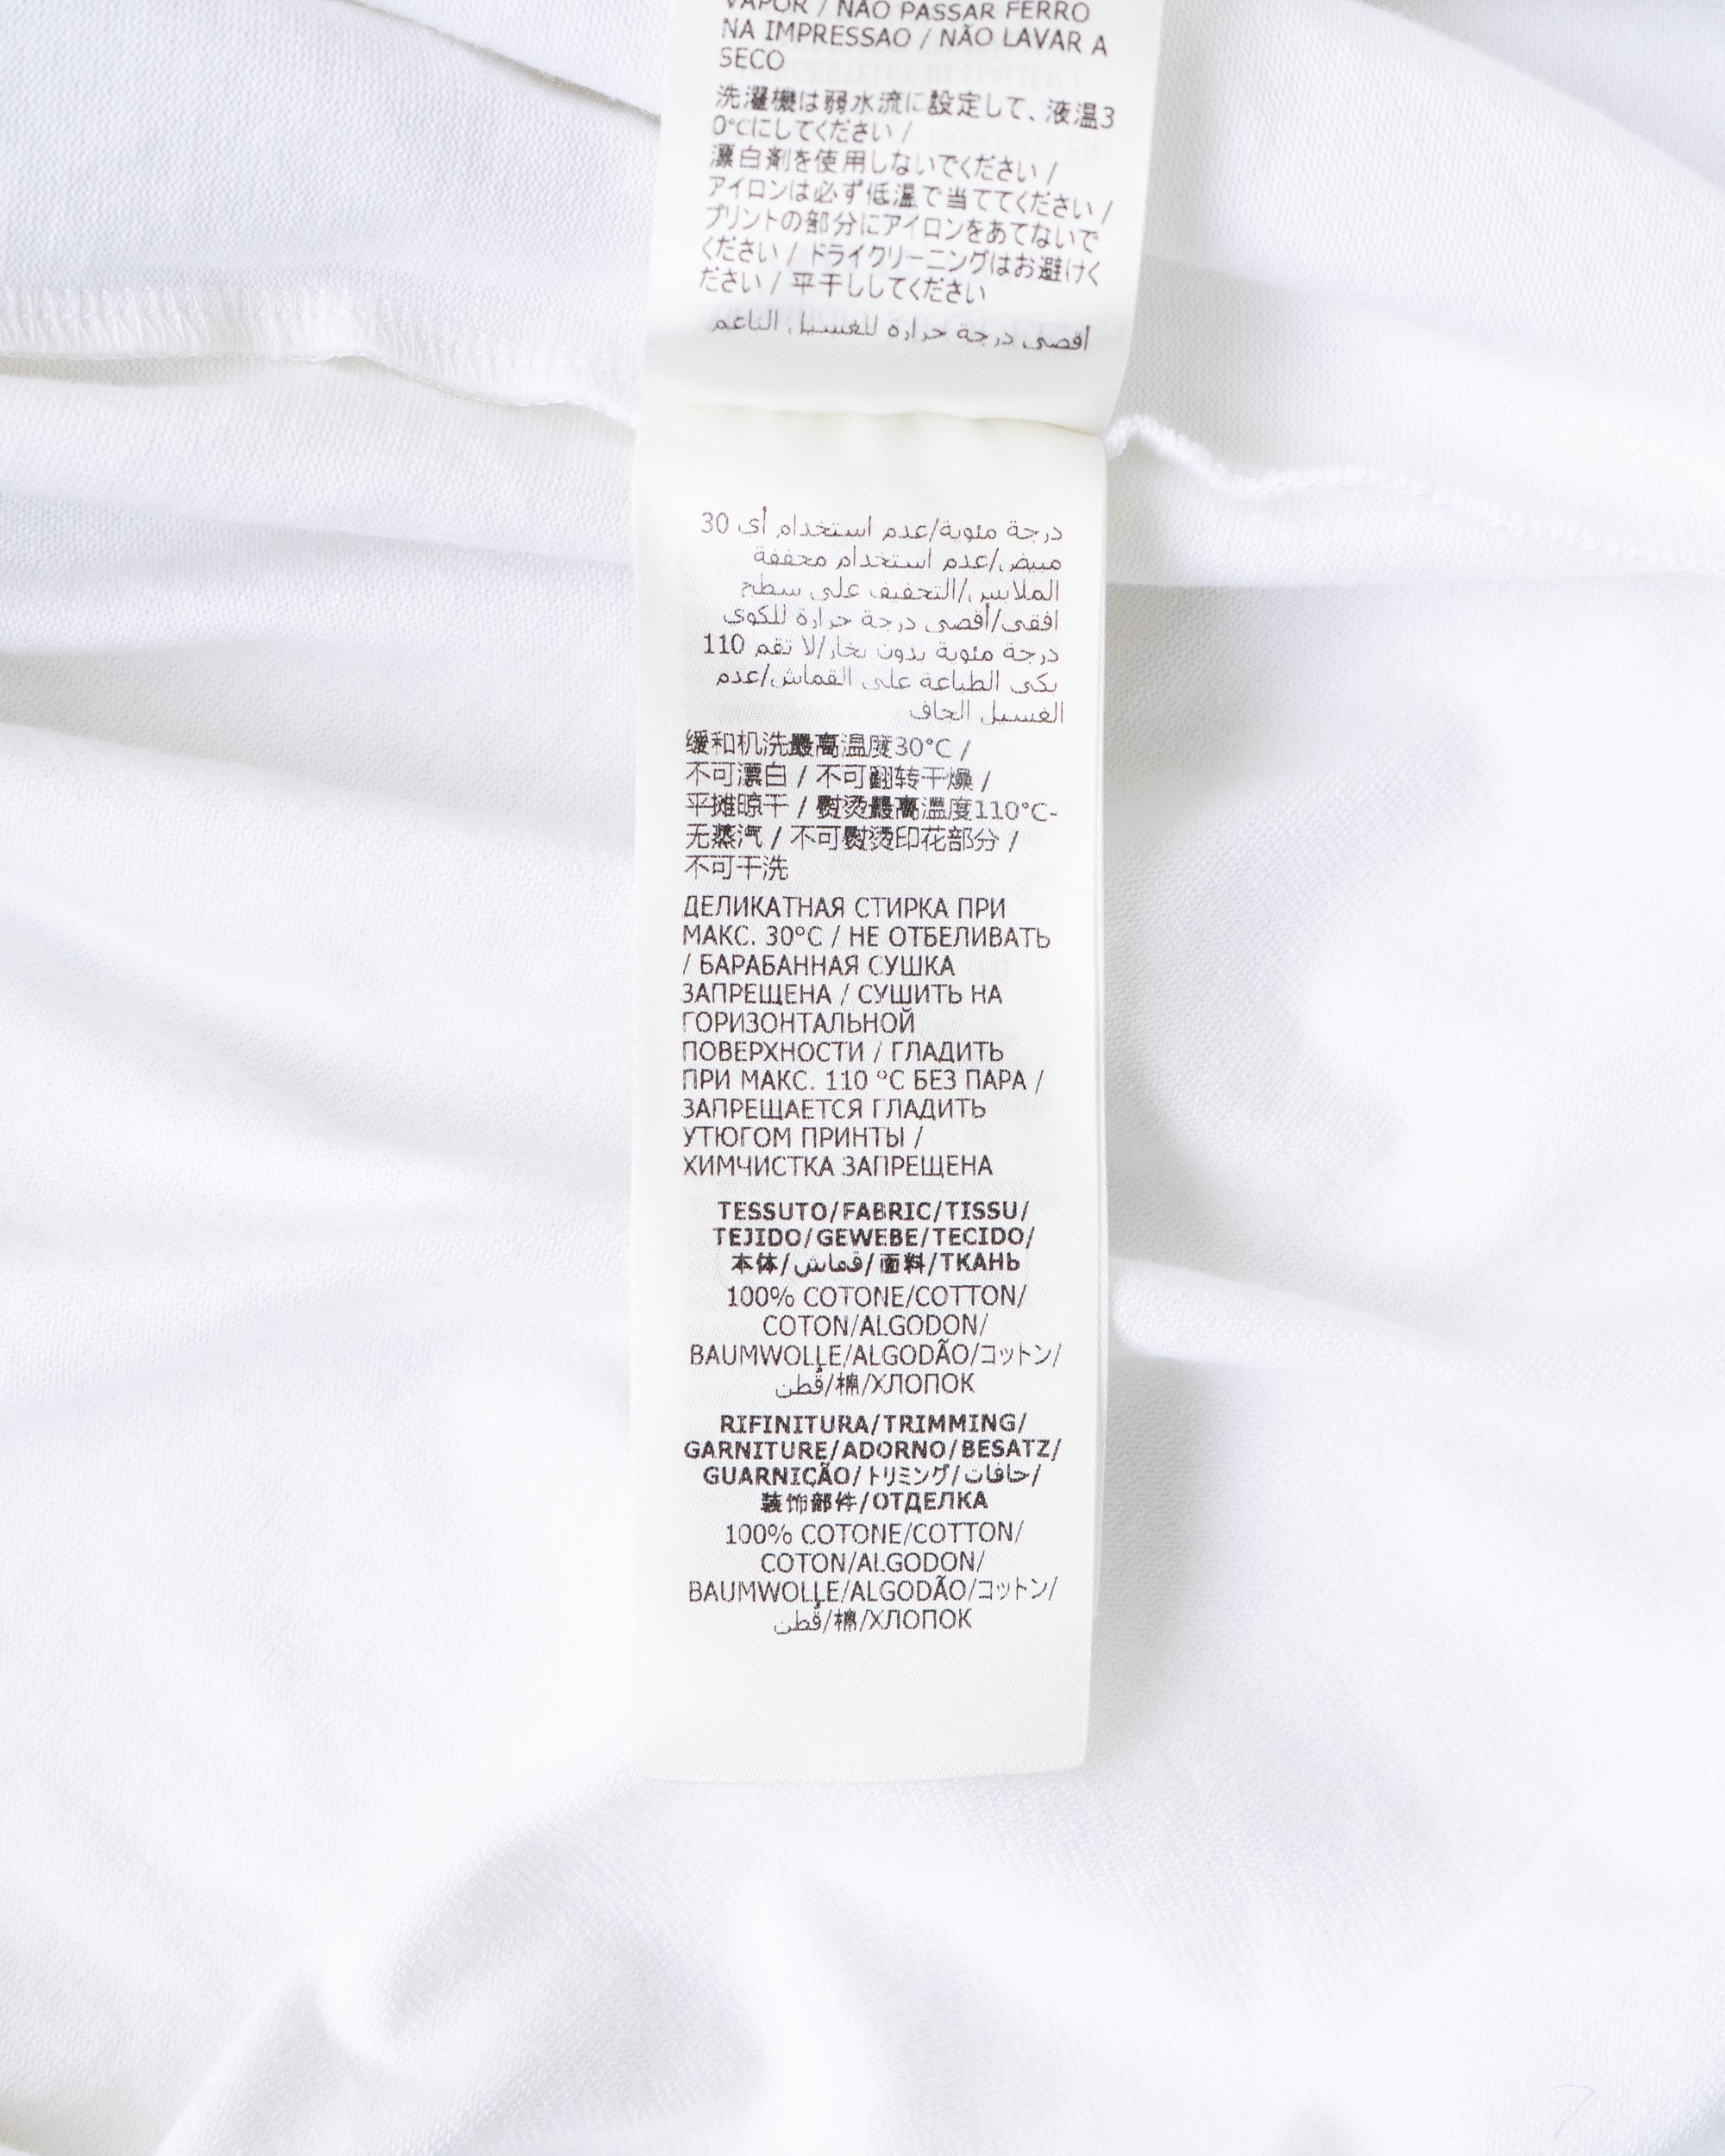 VAPOR / NÃO PASSAR FERRO
NA IMPRESSAO / NÃO LAVAR A
SECO
洗濯機は弱水流に設定して、液温3
0°Cにしてください /
漂白剤を使用しないでください /
アイロンは必ず低温で当ててください /
プリントの部分にアイロンをあてないで
ください / ドライクリーニングはお避けく
ださい / 平干ししてください
أقصى درجة حرارة للغسيل الناعم
درجة مئوية/عدم استخدام أي 30
مبيض/عدم استخدام مجففة
الملابس/التجفيف على سطح
افقي/أقصى درجة حرارة للكوي
درجة مئوية بدون بخار/لا تقم 110
بكى الطباعة على القماش/عدم
الغسيل الجاف
缓和机洗最高温度30°C /
不可漂白 / 不可翻转干燥 /
平摊晾干 / 熨烫最高温度110°C-
无蒸汽 / 不可熨烫印花部分 /
不可干洗
ДЕЛИКАТНАЯ СТИРКА ПРИ
МАКС. 30°C / НЕ ОТБЕЛИВАТЬ
/ БАРАБАННАЯ СУШКА
ЗАПРЕЩЕНА / СУШИТЬ НА
ГОРИЗОНТАЛЬНОЙ
ПОВЕРХНОСТИ / ГЛАДИТЬ
ПРИ МАКС. 110 °C БЕЗ ПАРА /
ЗАПРЕЩАЕТСЯ ГЛАДИТЬ
УТЮГОМ ПРИНТЫ /
ХИМЧИСТКА ЗАПРЕЩЕНА
TESSUTO/FABRIC/TISSU/
TEJIDO/GEWEBE/TECIDO/
本体/قماش/面料/ТКАНЬ
100% COTONE/COTTON/
COTON/ALGODON/
BAUMWOLLE/ALGODÃO/コットン/
قطن/棉/ХЛОПОК
RIFINITURA/TRIMMING/
GARNITURE/ADORNO/BESATZ/
GUARNIÇÃO/トリミング/حافات/
装饰部件/ОТДЕЛКА
100% COTONE/COTTON/
COTON/ALGODON/
BAUMWOLLE/ALGODÃO/コットン/
قطن/棉/ХЛОПОК